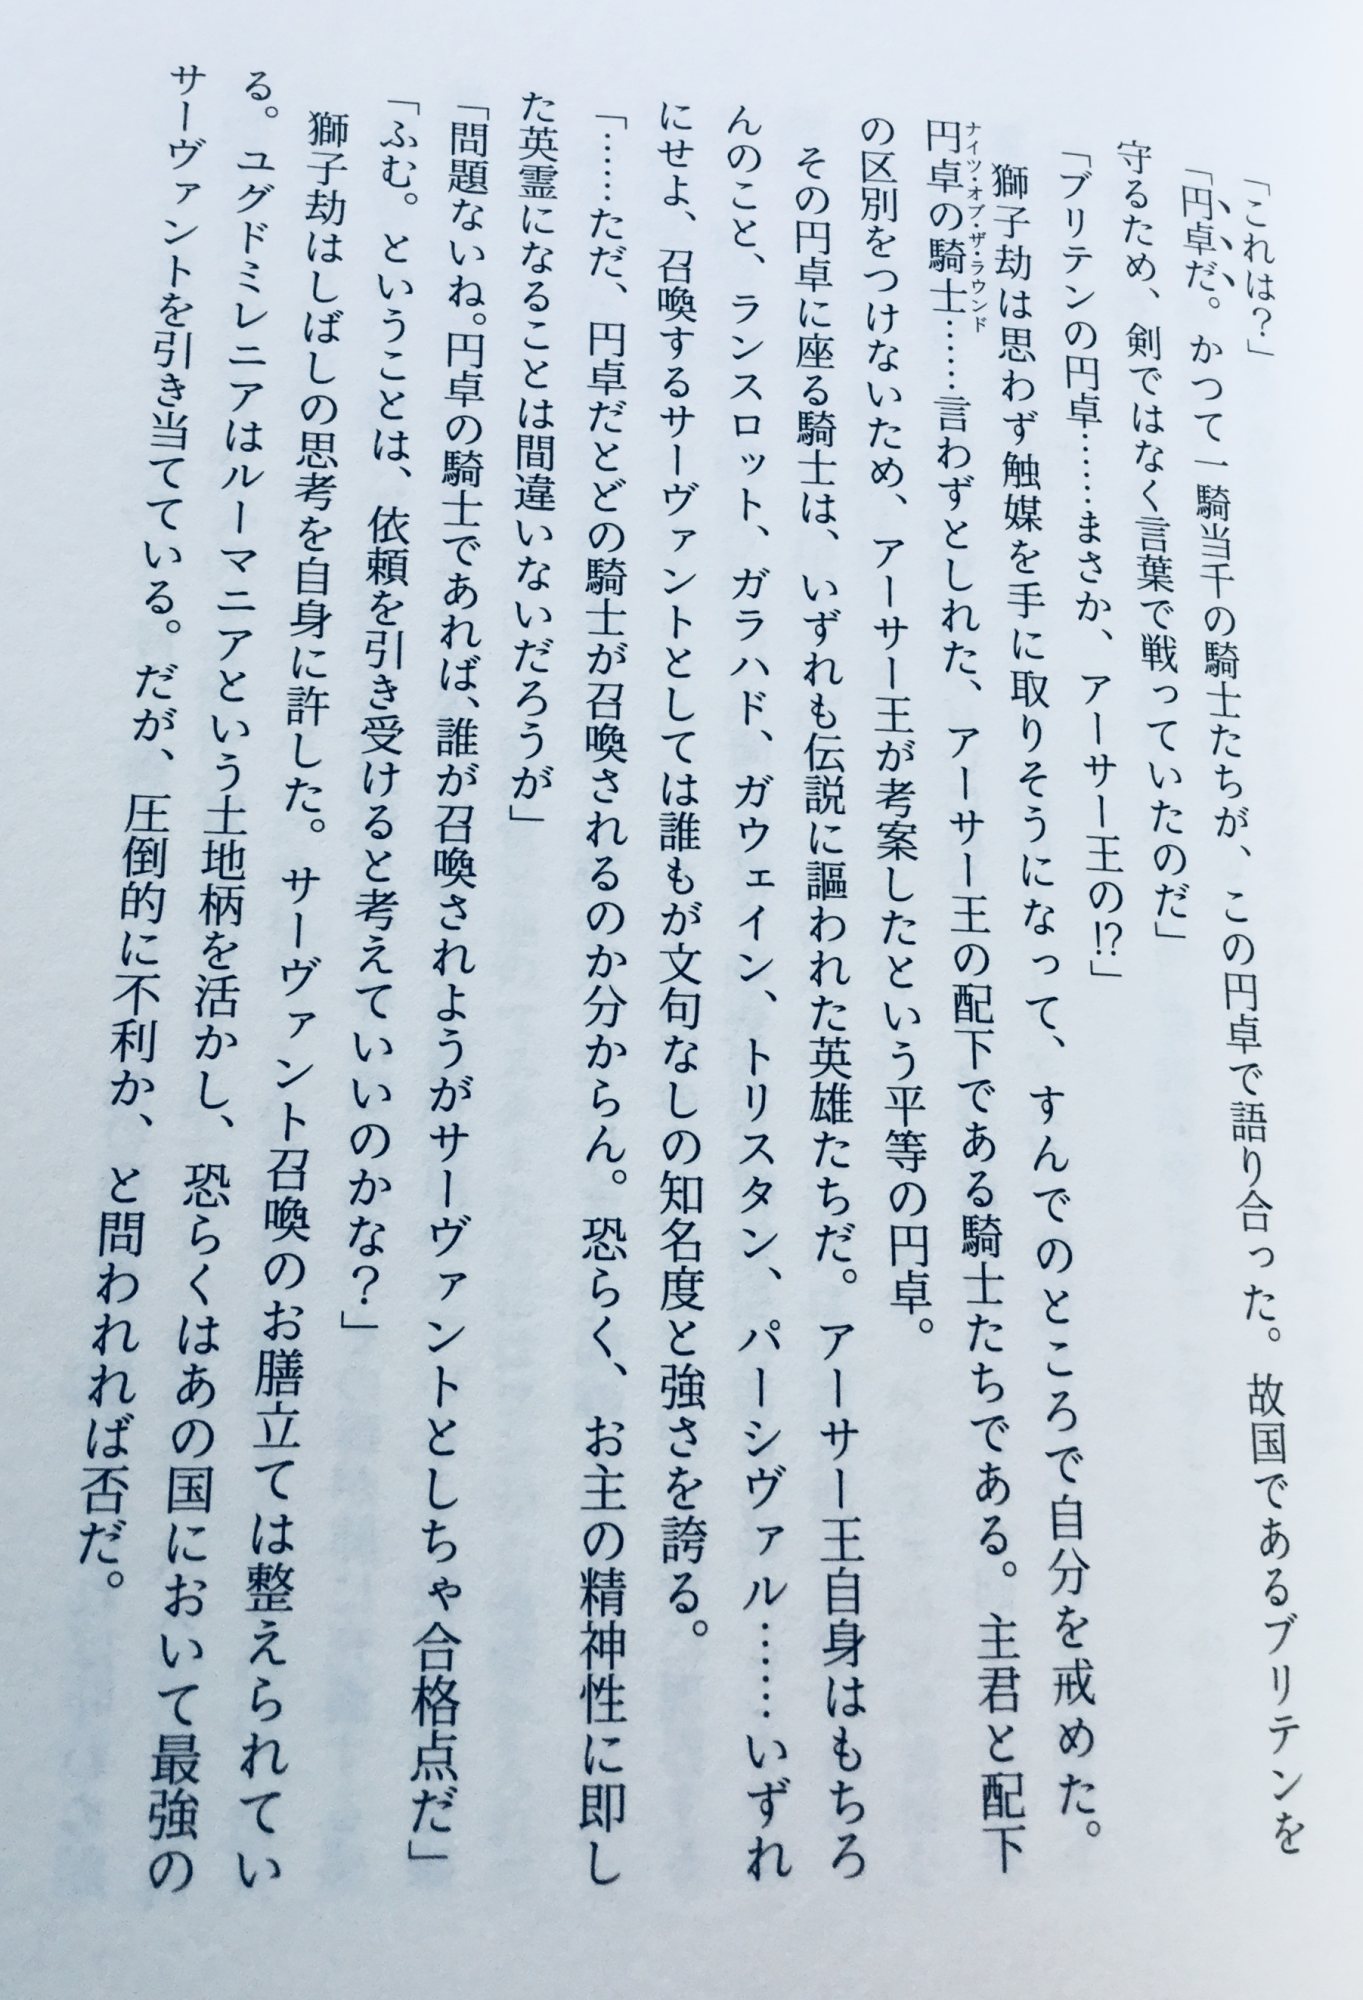 「これは？」
「円卓だ。かつて一騎当千の騎士たちが、この円卓で語り合った。故国であるブリテンを
守るため、剣ではなく言葉で戦っていたのだ」
「ブリテンの円卓……まさか、アーサー王の!?」
獅子劫は思わず触媒を手に取りそうになって、すんでのところで自分を戒めた。
ナイツ・オブ・ザ・ラウンド
円卓の騎士……言わずとしれた、アーサー王の配下である騎士たちである。主君と配下
の区別をつけないため、アーサー王が考案したという平等の円卓。
その円卓に座る騎士は、いずれも伝説に謳われた英雄たちだ。アーサー王自身はもちろ
んのこと、ランスロット、ガラハド、ガウェイン、トリスタン、パーシヴァル……いずれ
にせよ、召喚するサーヴァントとしては誰もが文句なしの知名度と強さを誇る。
「……ただ、円卓だとどの騎士が召喚されるのか分からん。恐らく、お主の精神性に即し
た英霊になることは間違いないだろうが」
「問題ないね。円卓の騎士であれば、誰が召喚されようがサーヴァントとしちゃ合格点だ」
「ふむ。ということは、依頼を引き受けると考えていいのかな？」
獅子劫はしばしの思考を自身に許した。サーヴァント召喚のお膳立ては整えられてい
る。ユグドミレニアはルーマニアという土地柄を活かし、恐らくはあの国において最強の
サーヴァントを引き当てている。だが、圧倒的に不利か、と問われれば否だ。